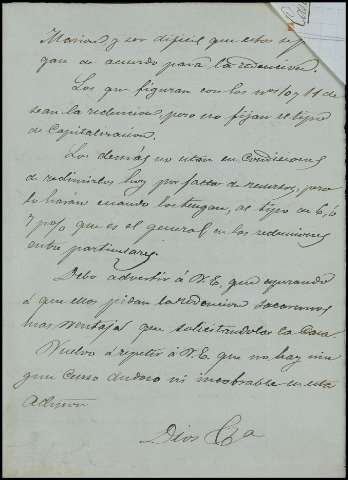 Marian y ser dificil que estos se pon
gan de acuerdo para la redencion.
Los que figuran con los nos 10 y 11 de
sean la redencion, pero no fijan el tipo
de Capitalizacion.
Los demás no estan en Condiciones
de redimirlos hoy por falta de recursos, pero
lo haran cuando los tengan, al tipo en 6, ó
7 p% que es el general en las redenciones
entre particulares.
Debo advertir á V.E. que esperando
á que ellos pidan la redencion sacaremos
mas ventajas que solicitandolas la Casa.
Vuelvo á repetir á V.E. que no hay nin
gun Censo dudoso ni incobrable en esta
Admon
Dios &a